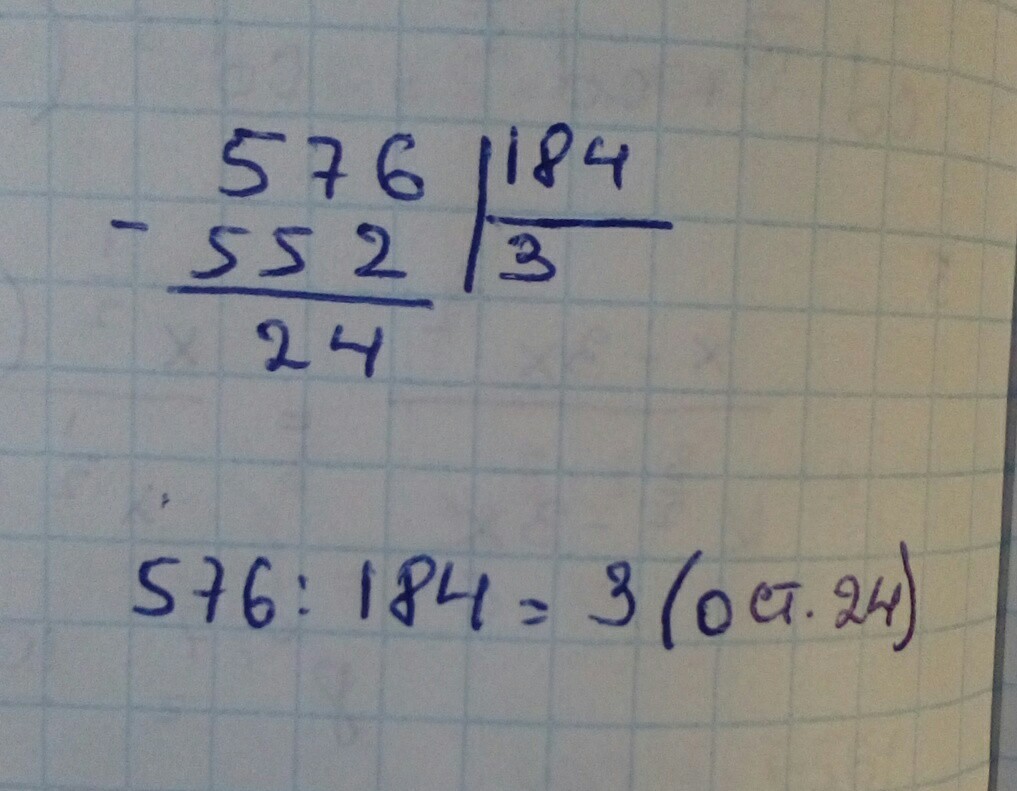 576 184
- 552 3
24
576 : 184 = 3 (ост. 24)